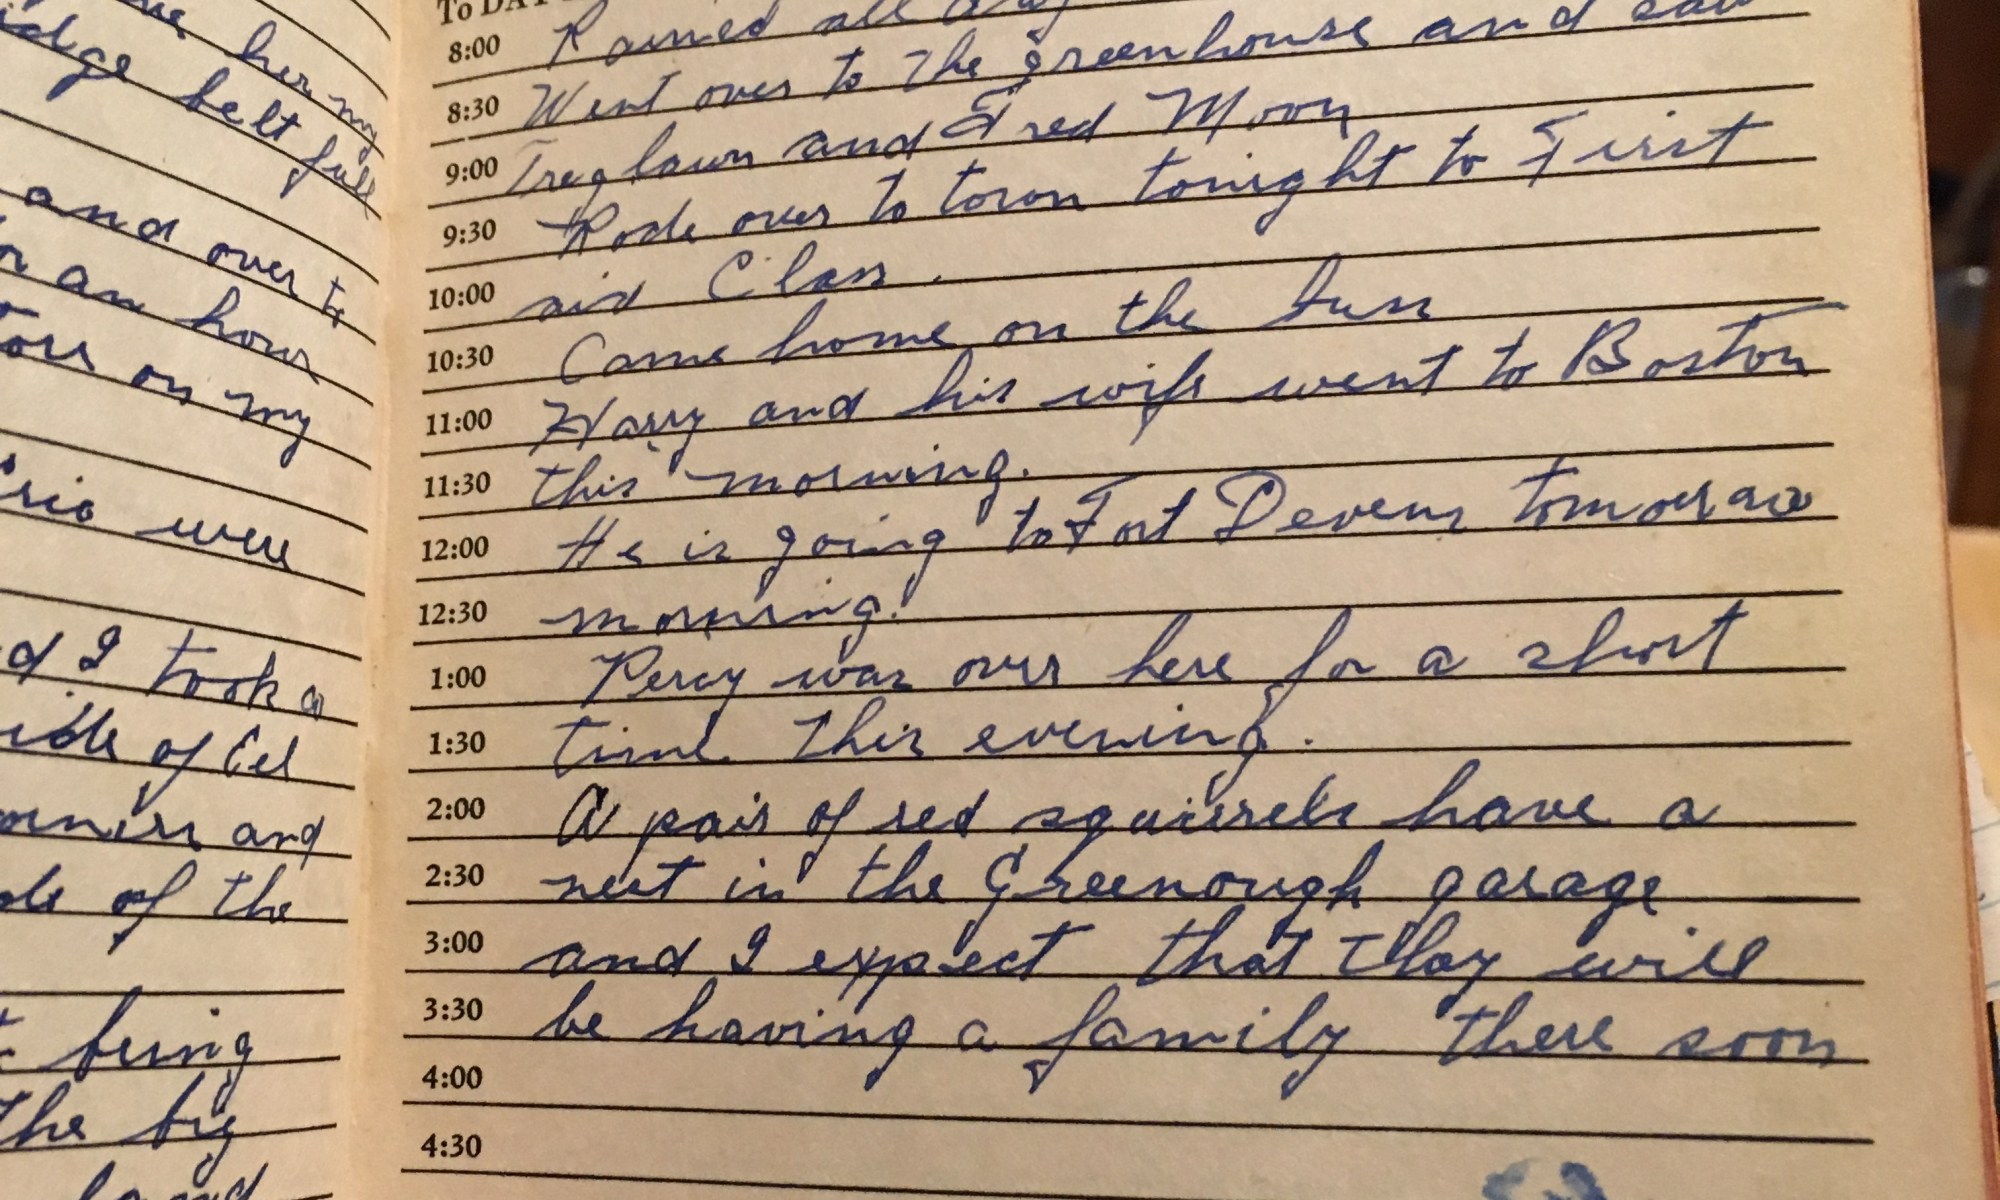 her my
idge belt full
and over to
an hour
on my
were
I took a
of Eel
and
of the
being
the big
To DA
8:00 Rained all day
8:30 Went over to the greenhouse and saw
9:00 Treglawn and Fred Moon
9:30 Rode over to town tonight to First
10:00 aid Class.
10:30 Came home on the buss
11:00 Harry and his wife went to Boston
11:30 this morning.
12:00 He is going to Fort Devens tomorrow
12:30 morning.
1:00 Percy was over here for a short
1:30 time this evening.
2:00 A pair of red squirrels have a
2:30 nest in the Greenough garage
3:00 and I expect that thay will
3:30 be having a family there soon
4:00
4:30